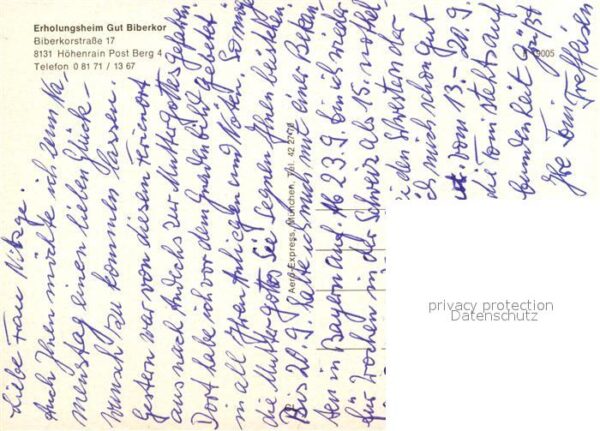 Erholungsheim Gut Biberkor
Biberkorstraße 17
8131 Höhenrain Post Berg 4
Telefon 0 81 71 / 13 67
9005
Aero-Express, München, Tel. 42 27
Liebe Frau
Auch Ihnen möchte ich zum Na-
menstag einen lieben Glück-
wunsch zu kommen lassen
Gestern war von diesen Ferienort
aus nach Andechs zur Muttergottes gefahren.
Dort habe ich vor dem Gnadenbild gebetet
in all Ihren Anliegen und Nöten. So möge
die Muttergottes Sie segnen Ihnen beistehen
Bis 20.9. bleibe ich noch mit einer Bekan-
ten in Bayern aug. Ab 23.9. bin ich wieder
für Wochen in der Schweiz als 15.
bei den Schwestern der
ich mich schon gut
vom 13. - 20.9.
die Toni stehts auf
bunden
Ihre Toni
privacy protection
Datenschutz